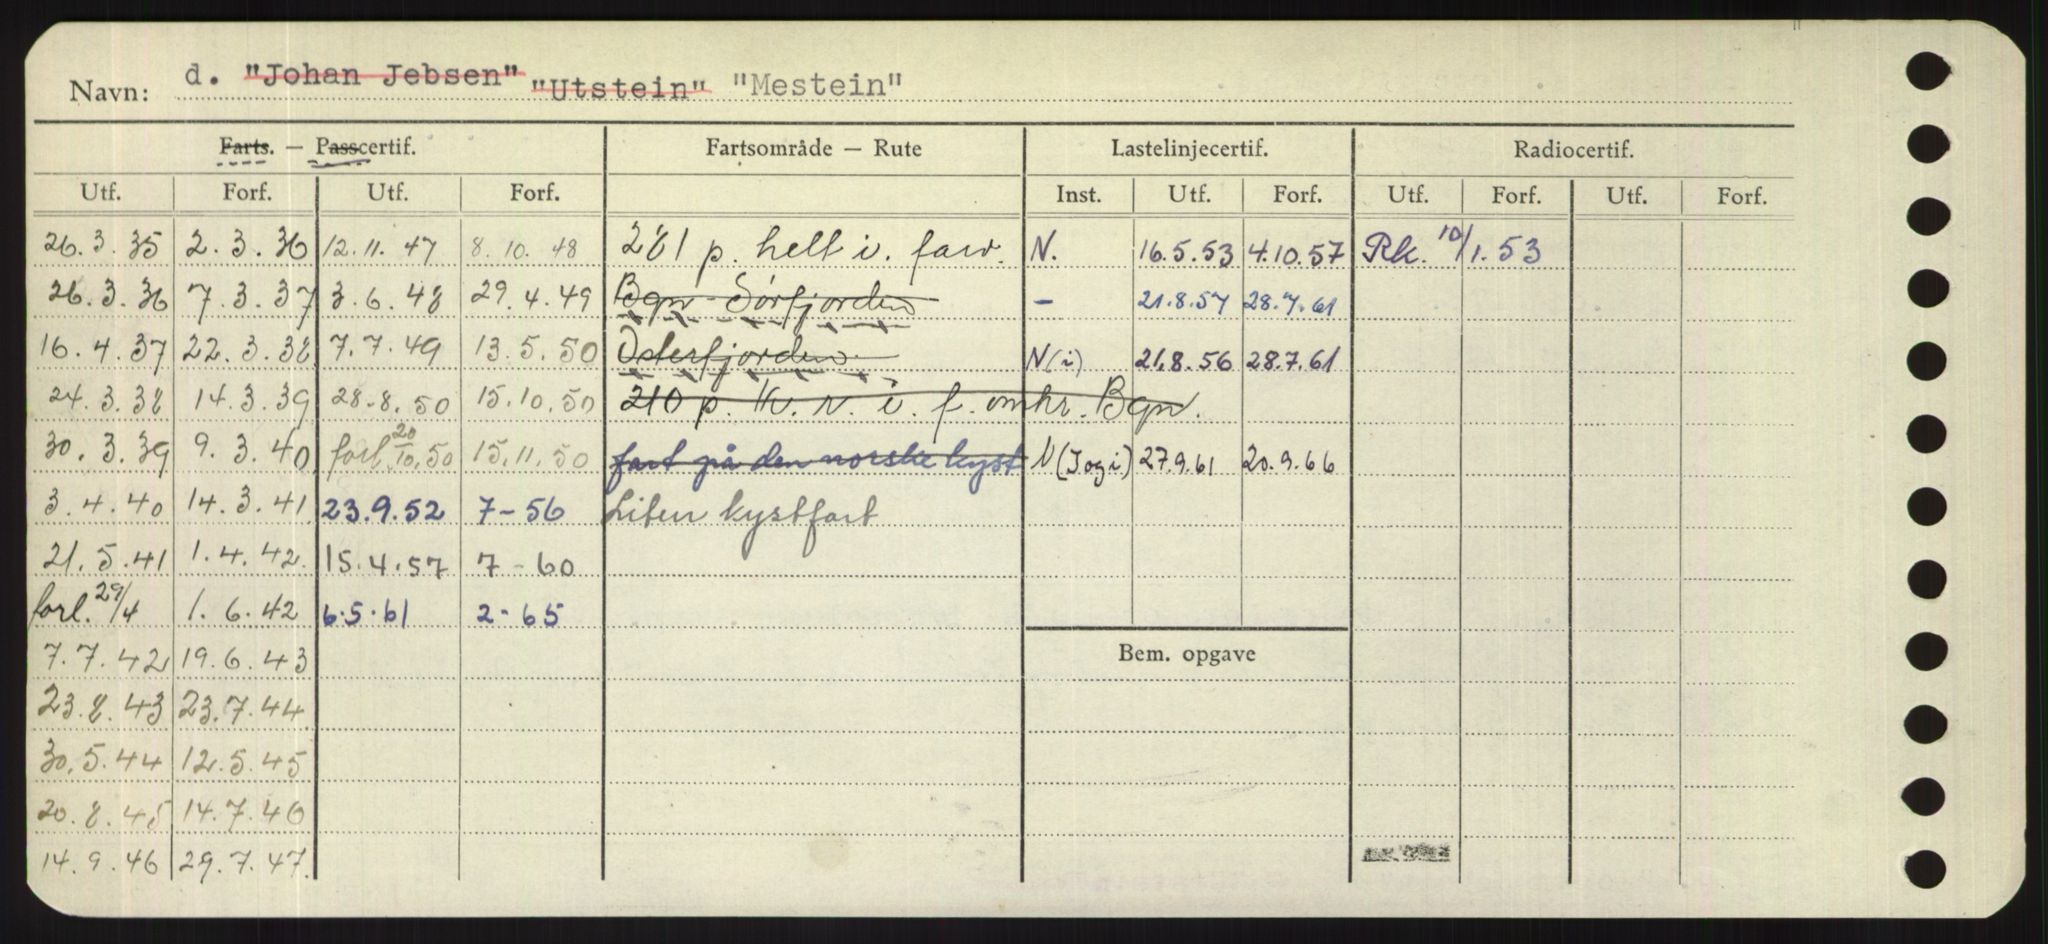 Navn: d. "Johan Jebsen" "Utstein" "Mestein"
Farts. — Passcertif. Fartsområde — Rute Lastelinjecertif. Radiocertif.
Utf. Forf. Utf. Forf. Inst. Utf. Forf. Utf. Forf. Utf. Forf.
26.3.35 2.3.36 12.11.47 8.10.48 281 p. helt i. farv. N. 16.5.53 4.10.57 Rk. 10/1.53
26.3.36 7.3.37 3.6.48 29.4.49 Bgn - Sörfjorden - 21.8.57 28.7.61
16.4.37 22.3.38 7.7.49 13.5.50 Osterfjorden N(i) 21.8.56 28.7.61
24.3.38 14.3.39 28.8.50 15.10.50 210 p. K. v. i. f. omkr. Bgn.
30.3.39 9.3.40 forl. 20/10.50 15.11.50 fart på den norske kyst N(I og i) 27.9.61 20.9.66
3.4.40 14.3.41 23.9.52 7-56 Liten kystfart
21.5.41 1.4.42. 15.4.57 7-60
forl. 29/4 1.6.42 6.5.61 2-65
7.7.42 19.6.43 Bem. opgave
23.8.43 23.7.44
30.5.44 12.5.45
20.8.45 14.7.46
14.9.46 29.7.47.